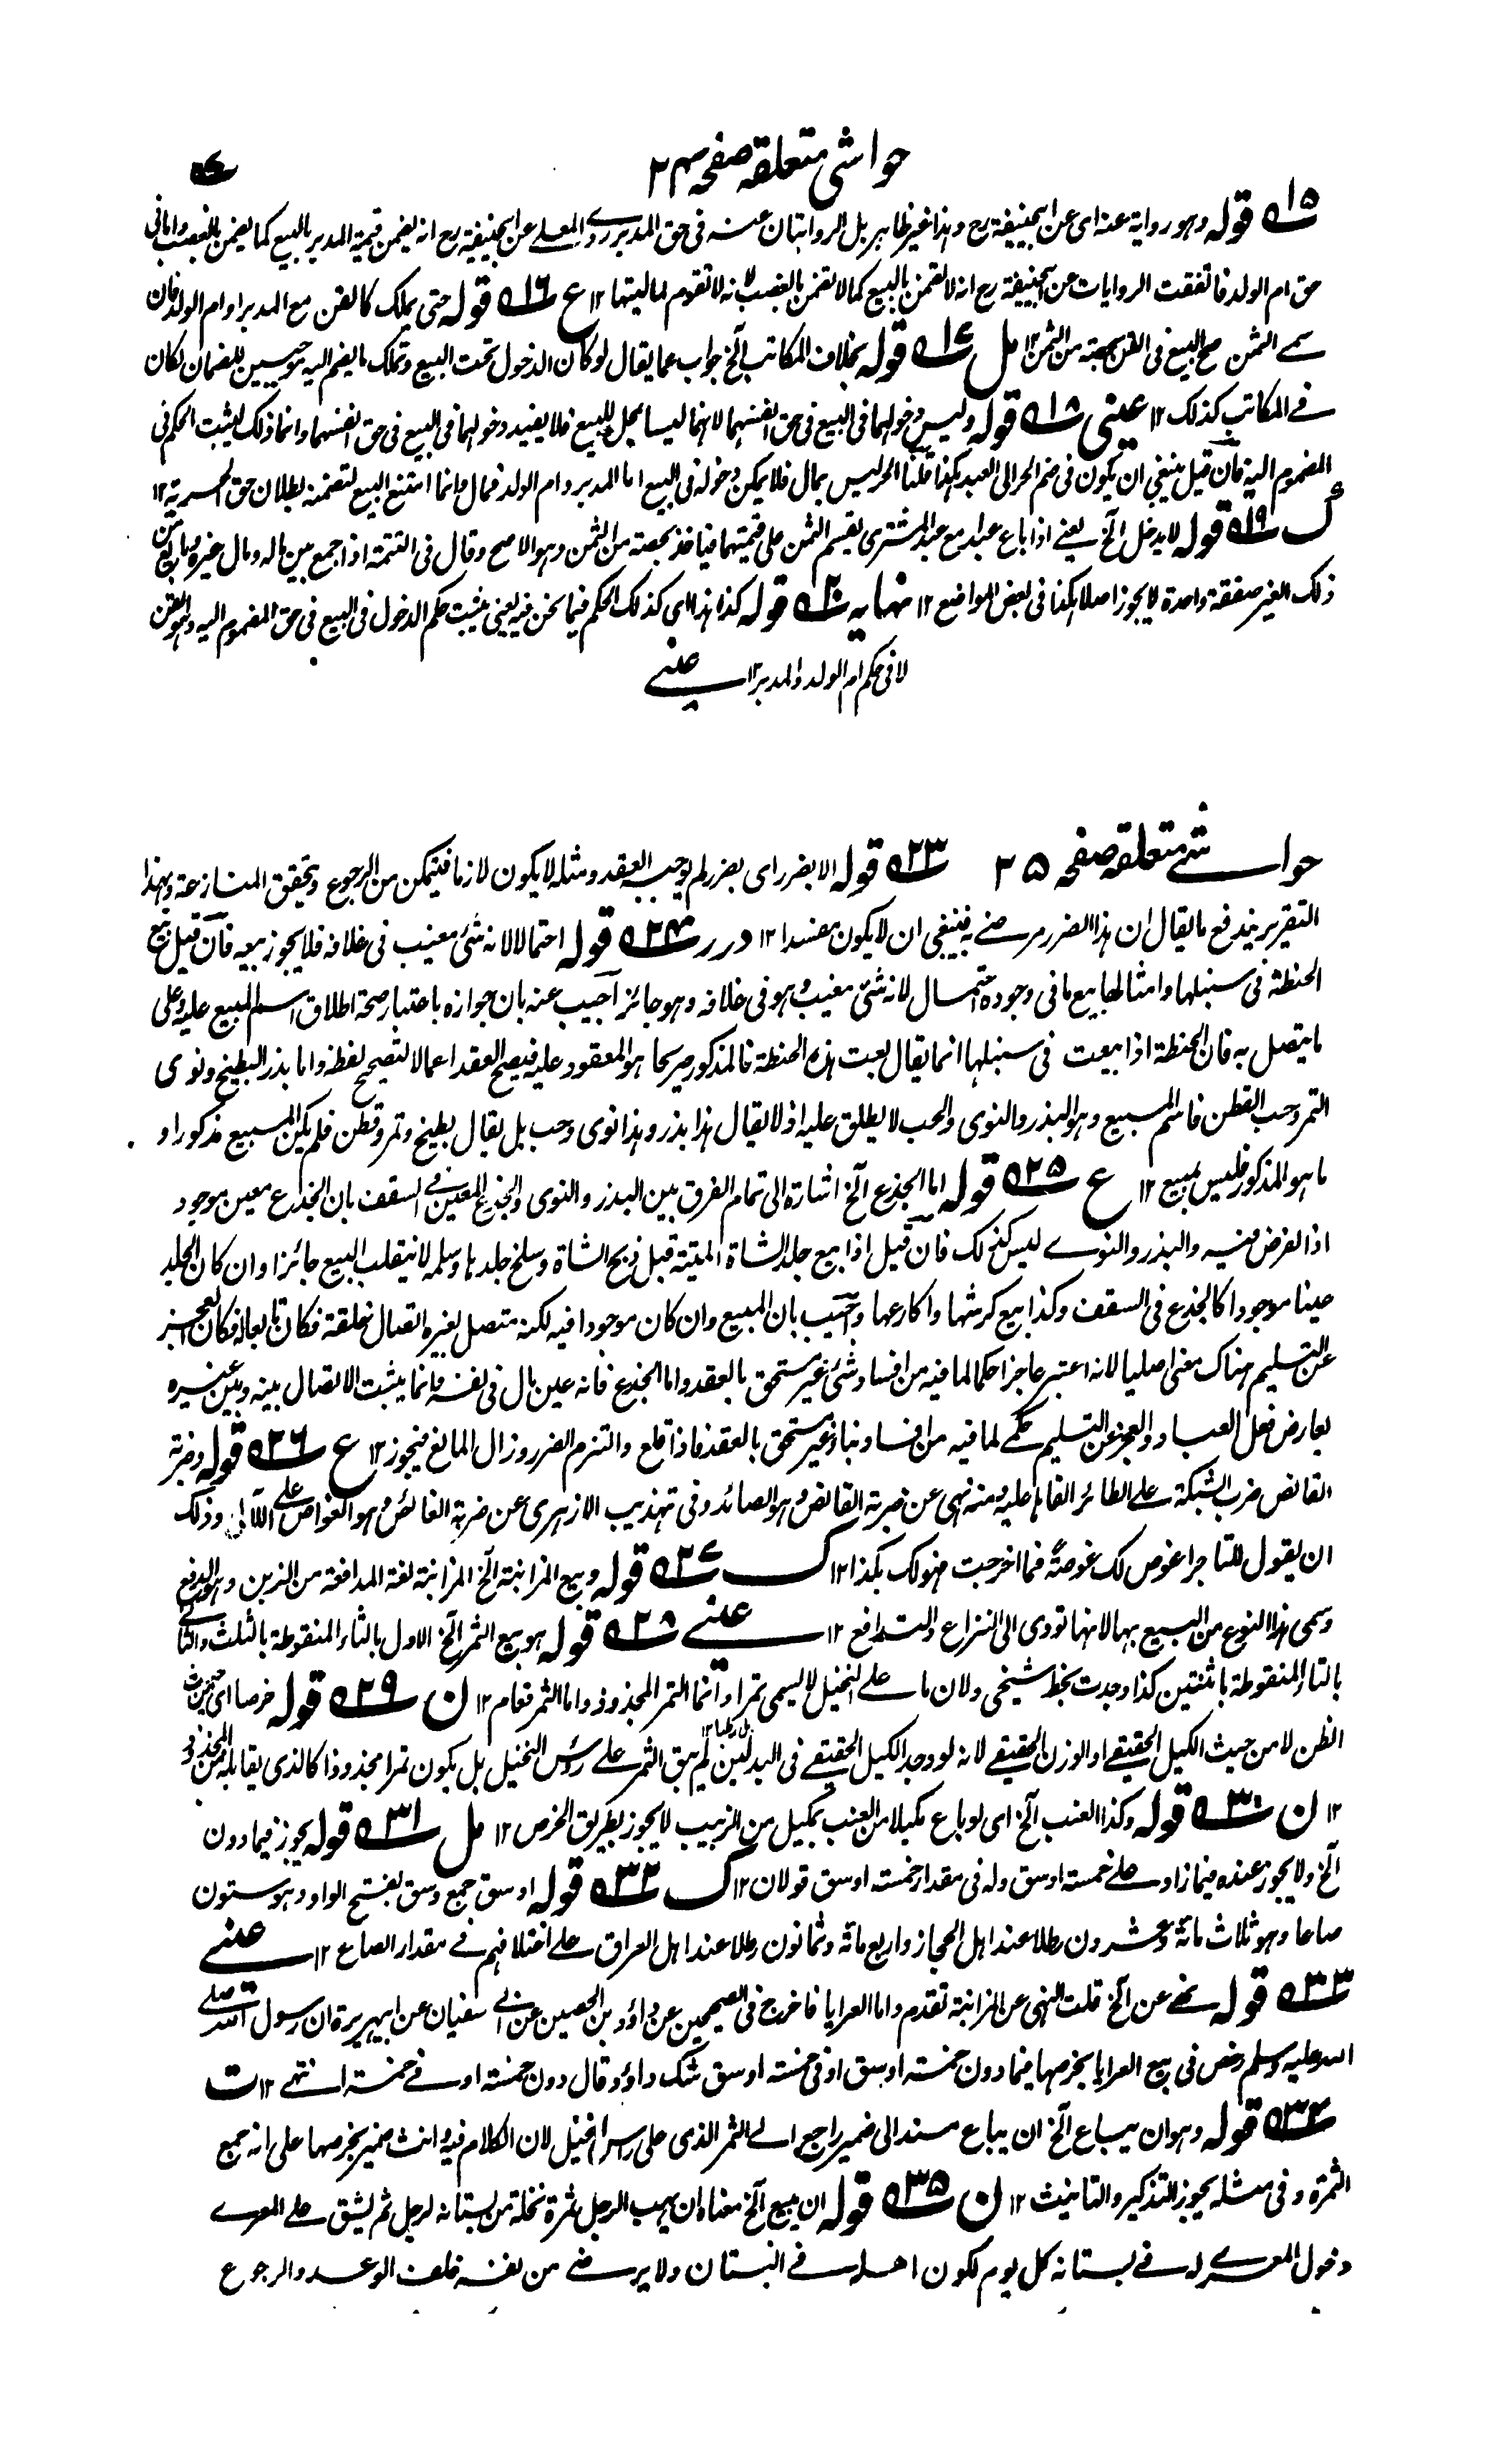 حواشی متعلقہ صفحہ ۲۴
۱۵ قوله وہو روایة عنہ ای عن ابیحنیفة رح وہذا غیر ظاہر بل الروایتان عنہ فی حق المدبر روے المعلے عن ابیحنیفة رح انہ یضمن قیمة المدبر بالبیع کما یضمن بالغصب واما فی
حق ام الولد فاتفقت الروایات عن ابیحنیفة رح انہ لا تضمن بالبیع کما لا تضمن بالغصب لانہ لا تقوم لمالیتہا ۱۲ ع ۱۶ قوله حتی یملک کالقن مع المدبر او ام الولد فان
سمے الثمن صح البیع فی القن بحصتہ من الثمن ۱۲ مل ۱۷ قوله بخلاف المکاتب الخ جواب عما یقال لو کان الدخول تحت البیع وتملک ما یضم الیہ موجبین للضمان لکان
فے المکاتب کذلک ۱۲ عینی ۱۸ قوله ولیس دخولہما فی البیع فی حق انفسہما لانہما لیسا بمحل للبیع فلا یفید دخولہما فی البیع فی حق انفسہما وانما ذلک لیثبت الحکم فی
المضموم الیہ فان قیل ینبغی ان یکون فی ضم الحر الی العبد ہکذا قلنا الحر لیس بمال فلا یمکن دخولہ فی البیع اما المدبر وام الولد فمال وانما امتنع البیع لتضمنہ بطلان حق الحریة ۱۲
ک ۱۹ قوله لا یدخل الخ یعنے اذا باع عبدا مع عبد المشتری یقسم الثمن علی قیمتہما فیاخذ بحصتہ من الثمن وہو الاصح وقال فی التتمة اذا جمع بین مالہ ومال غیرہ وباع من
ذلک الغیر صفقة واحدة لا یجوز اصلا ہکذا فی بعض المواضع ۱۲ نہایہ ۲۰ قوله کذا ہذا ای کذلک الحکم فیما نحن فیہ یعنی یثبت حکم الدخول فی البیع فی حق المضموم الیہ وہو القن
لا فی حکم ام الولد والمدبر ۱۲ عینے
حواشے متعلقہ صفحہ ۲۵ ۲۳ قوله الا بضرر ای بضرر لم یوجبہ العقد ومثلہ لا یکون لازما فیتمکن من الرجوع وتحقق المنازعة وبہذا
التقریر یندفع ما یقال ان ہذا الضرر مرضے بہ فینبغی ان لا یکون مفسدا ۱۲ درر ۲۴ قوله احتمالا لانہ شئ مغیب فی غلافہ فلا یجوز بیعہ فان قیل بیع
الحنطة فی سنبلہا وامثالہا بیع ما فی وجودہ احتمال لانہ شئ مغیب وہو فی غلافہ وہو جائز اجیب عنہ بان جوازہ باعتبار صحة اطلاق اسم المبیع علیہ وعلی
ما یتصل بہ فان الحنطة اذا بیعت فی سنبلہا انما یقال بعت ہذہ الحنطة فالمذکور صریحا ہو المعقود علیہ فیصح العقد اعمالا لتصحیح لفظہ واما بذر البطیخ ونوی
التمر وحب القطن فاسم المبیع وہو البذر والنوی والحب لا یطلق علیہ اذ لا یقال ہذا بذر وہذا نوی وحب بل یقال بطیخ وتمر وقطن فلم یکن المبیع مذکورا و
ما ہو المذکور فلیس بمبیع ۱۲ ع ۲۵ قوله اما الجذع الخ اشارة الی تمام الفرق بین البذر والنوی والجذع المعین فے السقف بان الجذع معین موجود
اذ الفرض فیہ والبذر والنوے لیس کذلک فان قیل اذا بیع جلد الشاة المتیتة قبل ذبح الشاة وسلخ جلدہا وسلمہ لا ینقلب البیع جائزا وان کان الجلد
عینا موجودا کالجذع فی السقف وکذا بیع کرشہا واکارعہا واجیب بان المبیع وان کان موجودا فیہ لکنہ متصل بغیرہ اتصال خلقة فکان تابعا لہ فکان العجز
عن التسلیم ہناک معنی اصلیا لانہ اعتبر عاجزا حکما لما فیہ من افساد شئ غیر مستحق بالعقد واما الجذع فانہ عین مال فی نفسہ وانما یثبت الاتصال بینہ وبین غیرہ
بعارض فعل العباد والعجز عن التسلیم حکمے لما فیہ من افساد بناء غیر مستحق بالعقد فاذا قلع والتزم الضرر وزال المانع فیجوز ۱۲ ع ۲۶ قوله وضربة
القانص ضرب الشبکة علے الطائر القاہا علیہ ومنہ نہی عن ضربة القانص وہو الصائد وفی تہذیب الازہری عن ضربة الغائص وہو الغواص علی اللآلی وذلک
ان یقول للتاجر اغوص لک غوصة فما اخرجت فہو لک بکذا ۱۲ ک ۲۷ قوله وبیع المزابنة الخ المزابنة لغة المدافعة من الزبن وہو الدفع
وسمی ہذا النوع من البیع بہا لانہا تودی الی النزاع والتدافع ۱۲ عینے ۲۸ قوله ہو بیع الثمر الخ الاول بالثاء المنقوطة بالثلث والثانے
بالتاء المنقوطة باثنتین کذا وجدت بخط شیخی ولان ما علے النخیل لا یسمی تمرا وانما التمر المجذوذ واما الثمر فعام ۱۲ ن ۲۹ قوله خرصا ای من حیث
الظن لا من حیث الکیل الحقیقے او الوزن الحقیقے لانہ لو وجد الکیل الحقیقے فی البدلین لم یبق الثمر علے رؤس النخیل بل یکون تمرا مجذوذا کالذی یقابلہ من المجذوذ
۱۲ ن ۳۰ قوله وکذا العنب الخ ای لو باع مکیلا من العنب بمکیل من الزبیب لا یجوز بطریق الخرص ۱۲ مل ۳۱ قوله یجوز فیما دون
الخ ولا یجوز عندہ فیما زاد علے خمسة اوسق ولہ فی مقدار خمسة اوسق قولان ۱۲ ک ۳۲ قوله اوسق جمع وسق بفتح الواو وہو ستون
صاعا وہو ثلاث مائة وعشرون رطلا عند اہل الحجاز واربع مائة وثمانون رطلا عند اہل العراق علے اختلافہم فے مقدار الصاع ۱۲ عینے
۳۳ قوله نہے عن الخ قلت النہی عن المزابنة تقدم واما العرایا فاخرج فی الصحیحین عن داؤد بن الحصین عن ابی سفیان عن ابیہریرة ان رسول اللہ صلے
اللہ علیہ وسلم رخص فی بیع العرایا بخرصہا فیما دون خمسة اوسق او فی خمسة اوسق شک داؤد وقال دون خمسة او فے خمسة انتہے ۱۲ ت
۳۴ قوله وہو ان یباع الخ ان یباع مسند الی ضمیر راجع الے الثمر الذی علی راس النخیل لان الکلام فیہ وانث ضمیر بخرصہا علی انہ جمع
الثمرة وفی مثلہ یجوز التذکیر والتانیث ۱۲ ن ۳۵ قوله ان یبیع الخ معناہ ان یہب الرجل ثمرة نخلة من بستانہ لرجل ثم یشق علے المعرے
دخول المعرے لہ فے بستانہ کل یوم لکون اہلہ فے البستان ولا یرضے من نفسہ خلف الوعد والرجوع